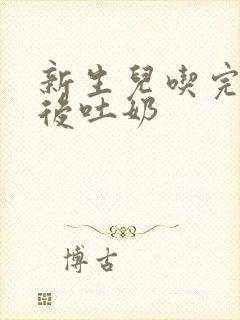 新生兒喫完
後吐奶
博古